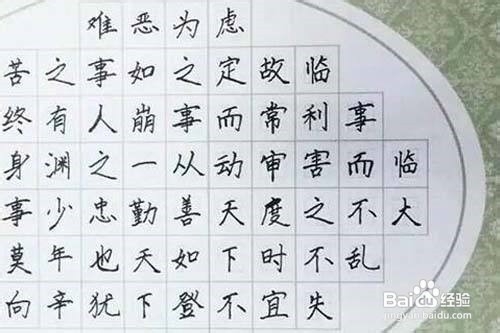 临大
事而不乱
临利害之不失
故常审度时宜
虑定而动天下不
为之事从善如登
恶如崩一勤天下
难事人之忠也犹
之有渊少年辛
苦终身事莫向
Baidu经验
jingyan.baidu.com